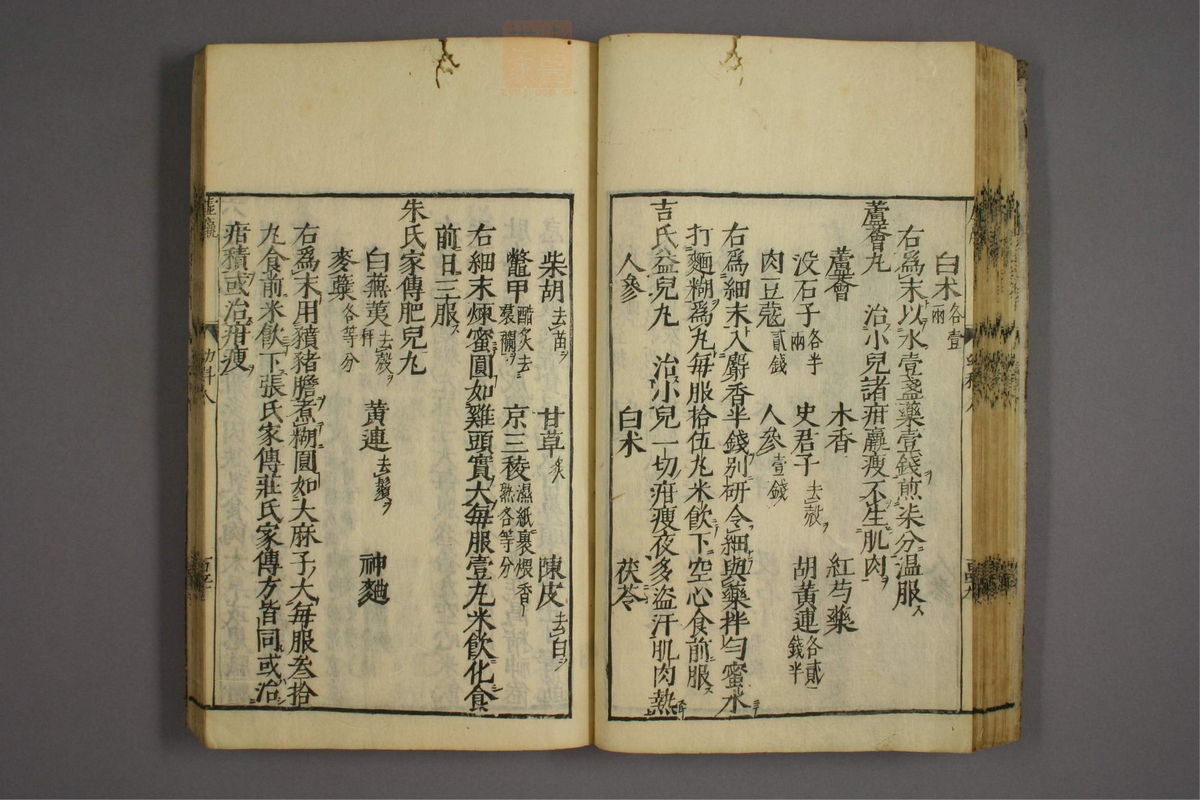 白朮各壹兩
右爲末以水壹盞藥壹錢煎柒分溫服ス
蘆薈丸　治小兒諸疳羸瘦不生肌肉
蘆薈　木香　紅芍藥
没石子各半兩　史君子去殼　胡黃連各貳錢半
肉豆蔻貳錢　人參壹錢
右爲細末入麝香半錢別研令細與藥拌勻蜜水
打麵糊爲丸每服拾伍丸米飲下空心食前服ス
吉氏益兒丸　治小兒一切疳瘦夜多盜汗肌肉熱
人參　白朮　茯苓
柴胡去苗　甘草炙　陳皮去白
鼈甲醋炙去裙襴　京三稜濕紙裹煨香熟各等分
右細末煉蜜圓如雞頭實大每服壹丸米飲化食
前日三服ス
朱氏家傳肥兒丸
白蕪荑去殼秤　黃連去鬚　神麯
麥蘗各等分
右爲末用豶豬膽煮糊圓如大麻子大每服叁拾
丸食前米飲下張氏家傳莊氏家傳方皆同或治
疳積或治疳瘦